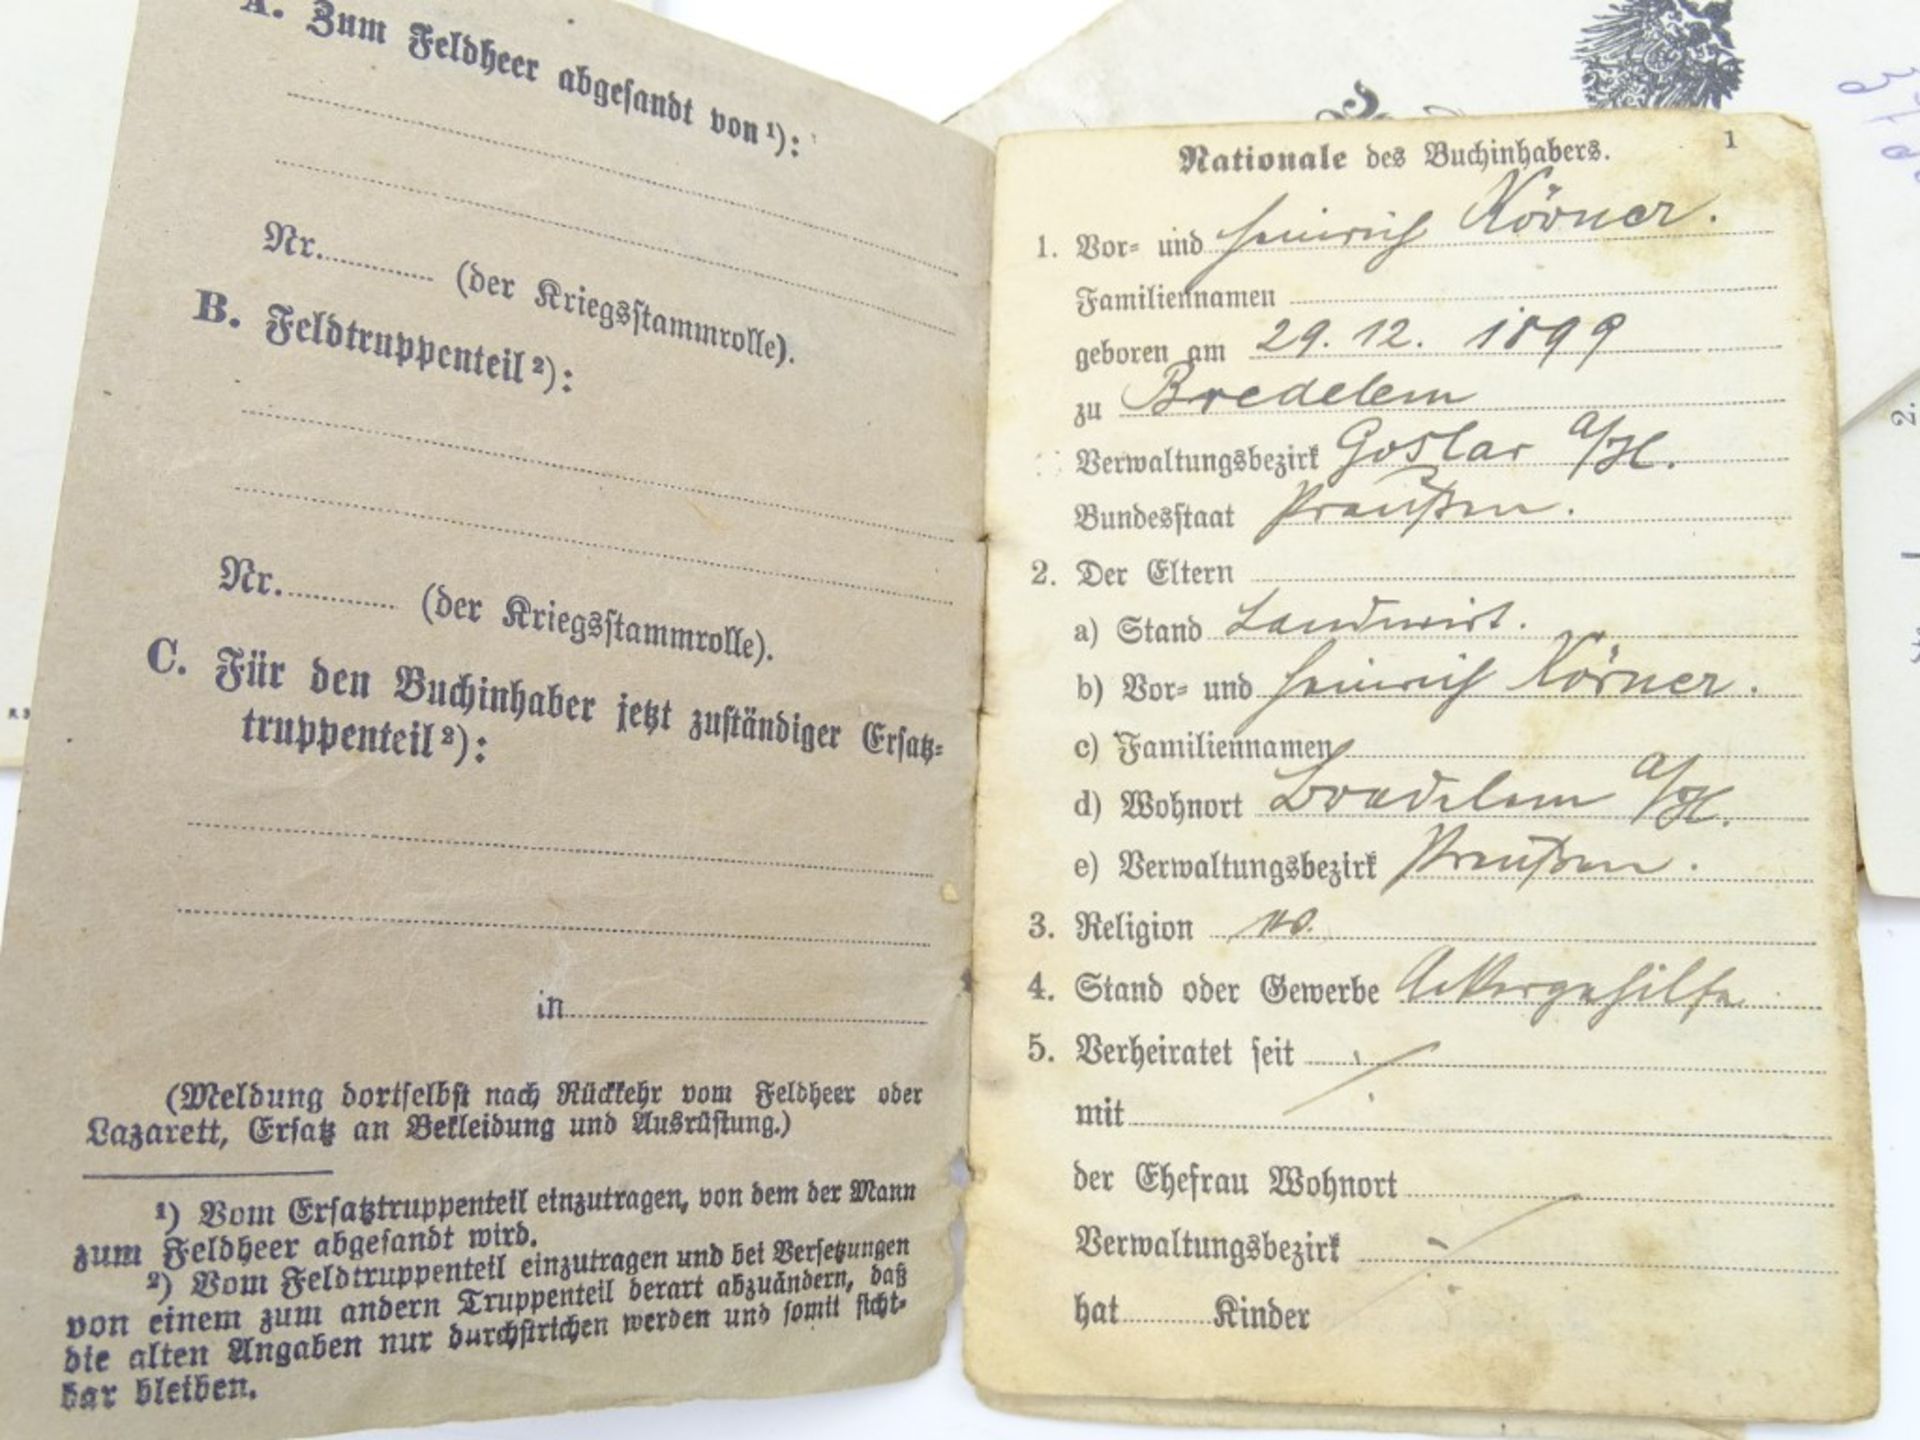 A. Zum Feldheer abgesandt von ¹):
Nr. (der Kriegsstammrolle).
B. Feldtruppenteil ²):
Nr. (der Kriegsstammrolle).
C. Für den Buchinhaber jetzt zuständiger Ersatz-
truppenteil ²):
in
(Meldung dortselbst nach Rückkehr vom Feldheer oder
Lazarett, Ersatz an Bekleidung und Ausrüstung.)
¹) Vom Ersatztruppenteil einzutragen, von dem der Mann
zum Feldheer abgesandt wird.
²) Vom Feldtruppenteil einzutragen und bei Versetzungen
von einem zum andern Truppenteil derart abzuändern, daß
die alten Angaben nur durchstrichen werden und somit sicht-
bar bleiben.
1
Nationale des Buchinhabers.
1. Vor- und Heinrich Körner.
Familiennamen
geboren am 29. 12. 1899
zu Bredelem
Verwaltungsbezirk Goslar a/H.
Bundesstaat Preußen.
2. Der Eltern
a) Stand Landwirt.
b) Vor- und Heinrich Körner.
c) Familiennamen
d) Wohnort Bredelem a/H.
e) Verwaltungsbezirk Preußen.
3. Religion ev.
4. Stand oder Gewerbe Ackergehilfe
5. Verheiratet seit
mit
der Ehefrau Wohnort
Verwaltungsbezirk
hat Kinder
2.